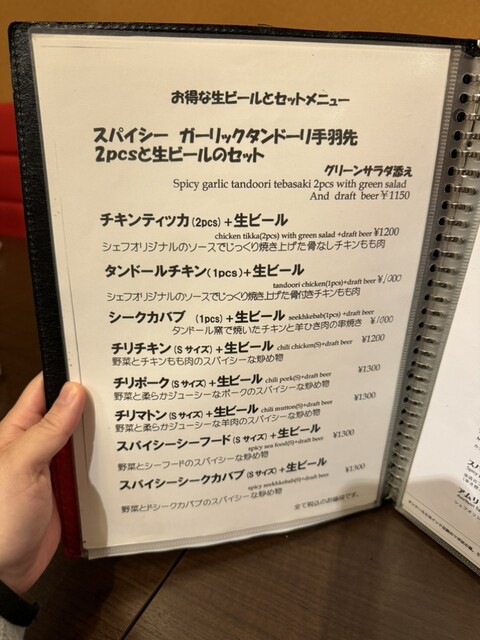 お得な生ビールとセットメニュー
スパイシー ガーリックタンドーリ手羽先
2pcsと生ビールのセット
グリーンサラダ添え
Spicy garlic tandoori tebasaki 2pcs with green salad
And draft beer ¥1150
チキンティッカ(2pcs)+生ビール
chicken tikka(2pcs) with green salad +draft beer ¥1200
シェフオリジナルのソースでじっくり焼き上げた骨なしチキンもも肉
タンドールチキン(1pcs)+生ビール
tandoori chicken(1pcs)+draft beer ¥1000
シェフオリジナルのソースでじっくり焼き上げた骨付きチキンもも肉
シークカバブ (1pcs)+生ビール seekhkebab(1pcs)+draft beer ¥1000
タンドール窯で焼いたチキンと羊ひき肉の串焼き
チリチキン(Sサイズ)+生ビール chili chicken(S)+draft beer ¥1200
野菜とチキンもも肉のスパイシーな炒め物
チリポーク(Sサイズ)+生ビール chili pork(S)+draft beer ¥1300
野菜と柔らかジューシーなポークのスパイシーな炒め物
チリマトン(Sサイズ)+生ビール chili mutton(S)+draft beer ¥1300
野菜と柔らかジューシーな羊肉のスパイシーな炒め物
スパイシーシーフード(Sサイズ)+生ビール
spicy sea food(S)+draft beer ¥1300
野菜とシーフードのスパイシーな炒め物
スパイシーシークカバブ(Sサイズ)+生ビール
spicy seekhkebab(S)+draft beer ¥1300
野菜とドシークカバブのスパイシーな炒め物
全て税込のお値段です。